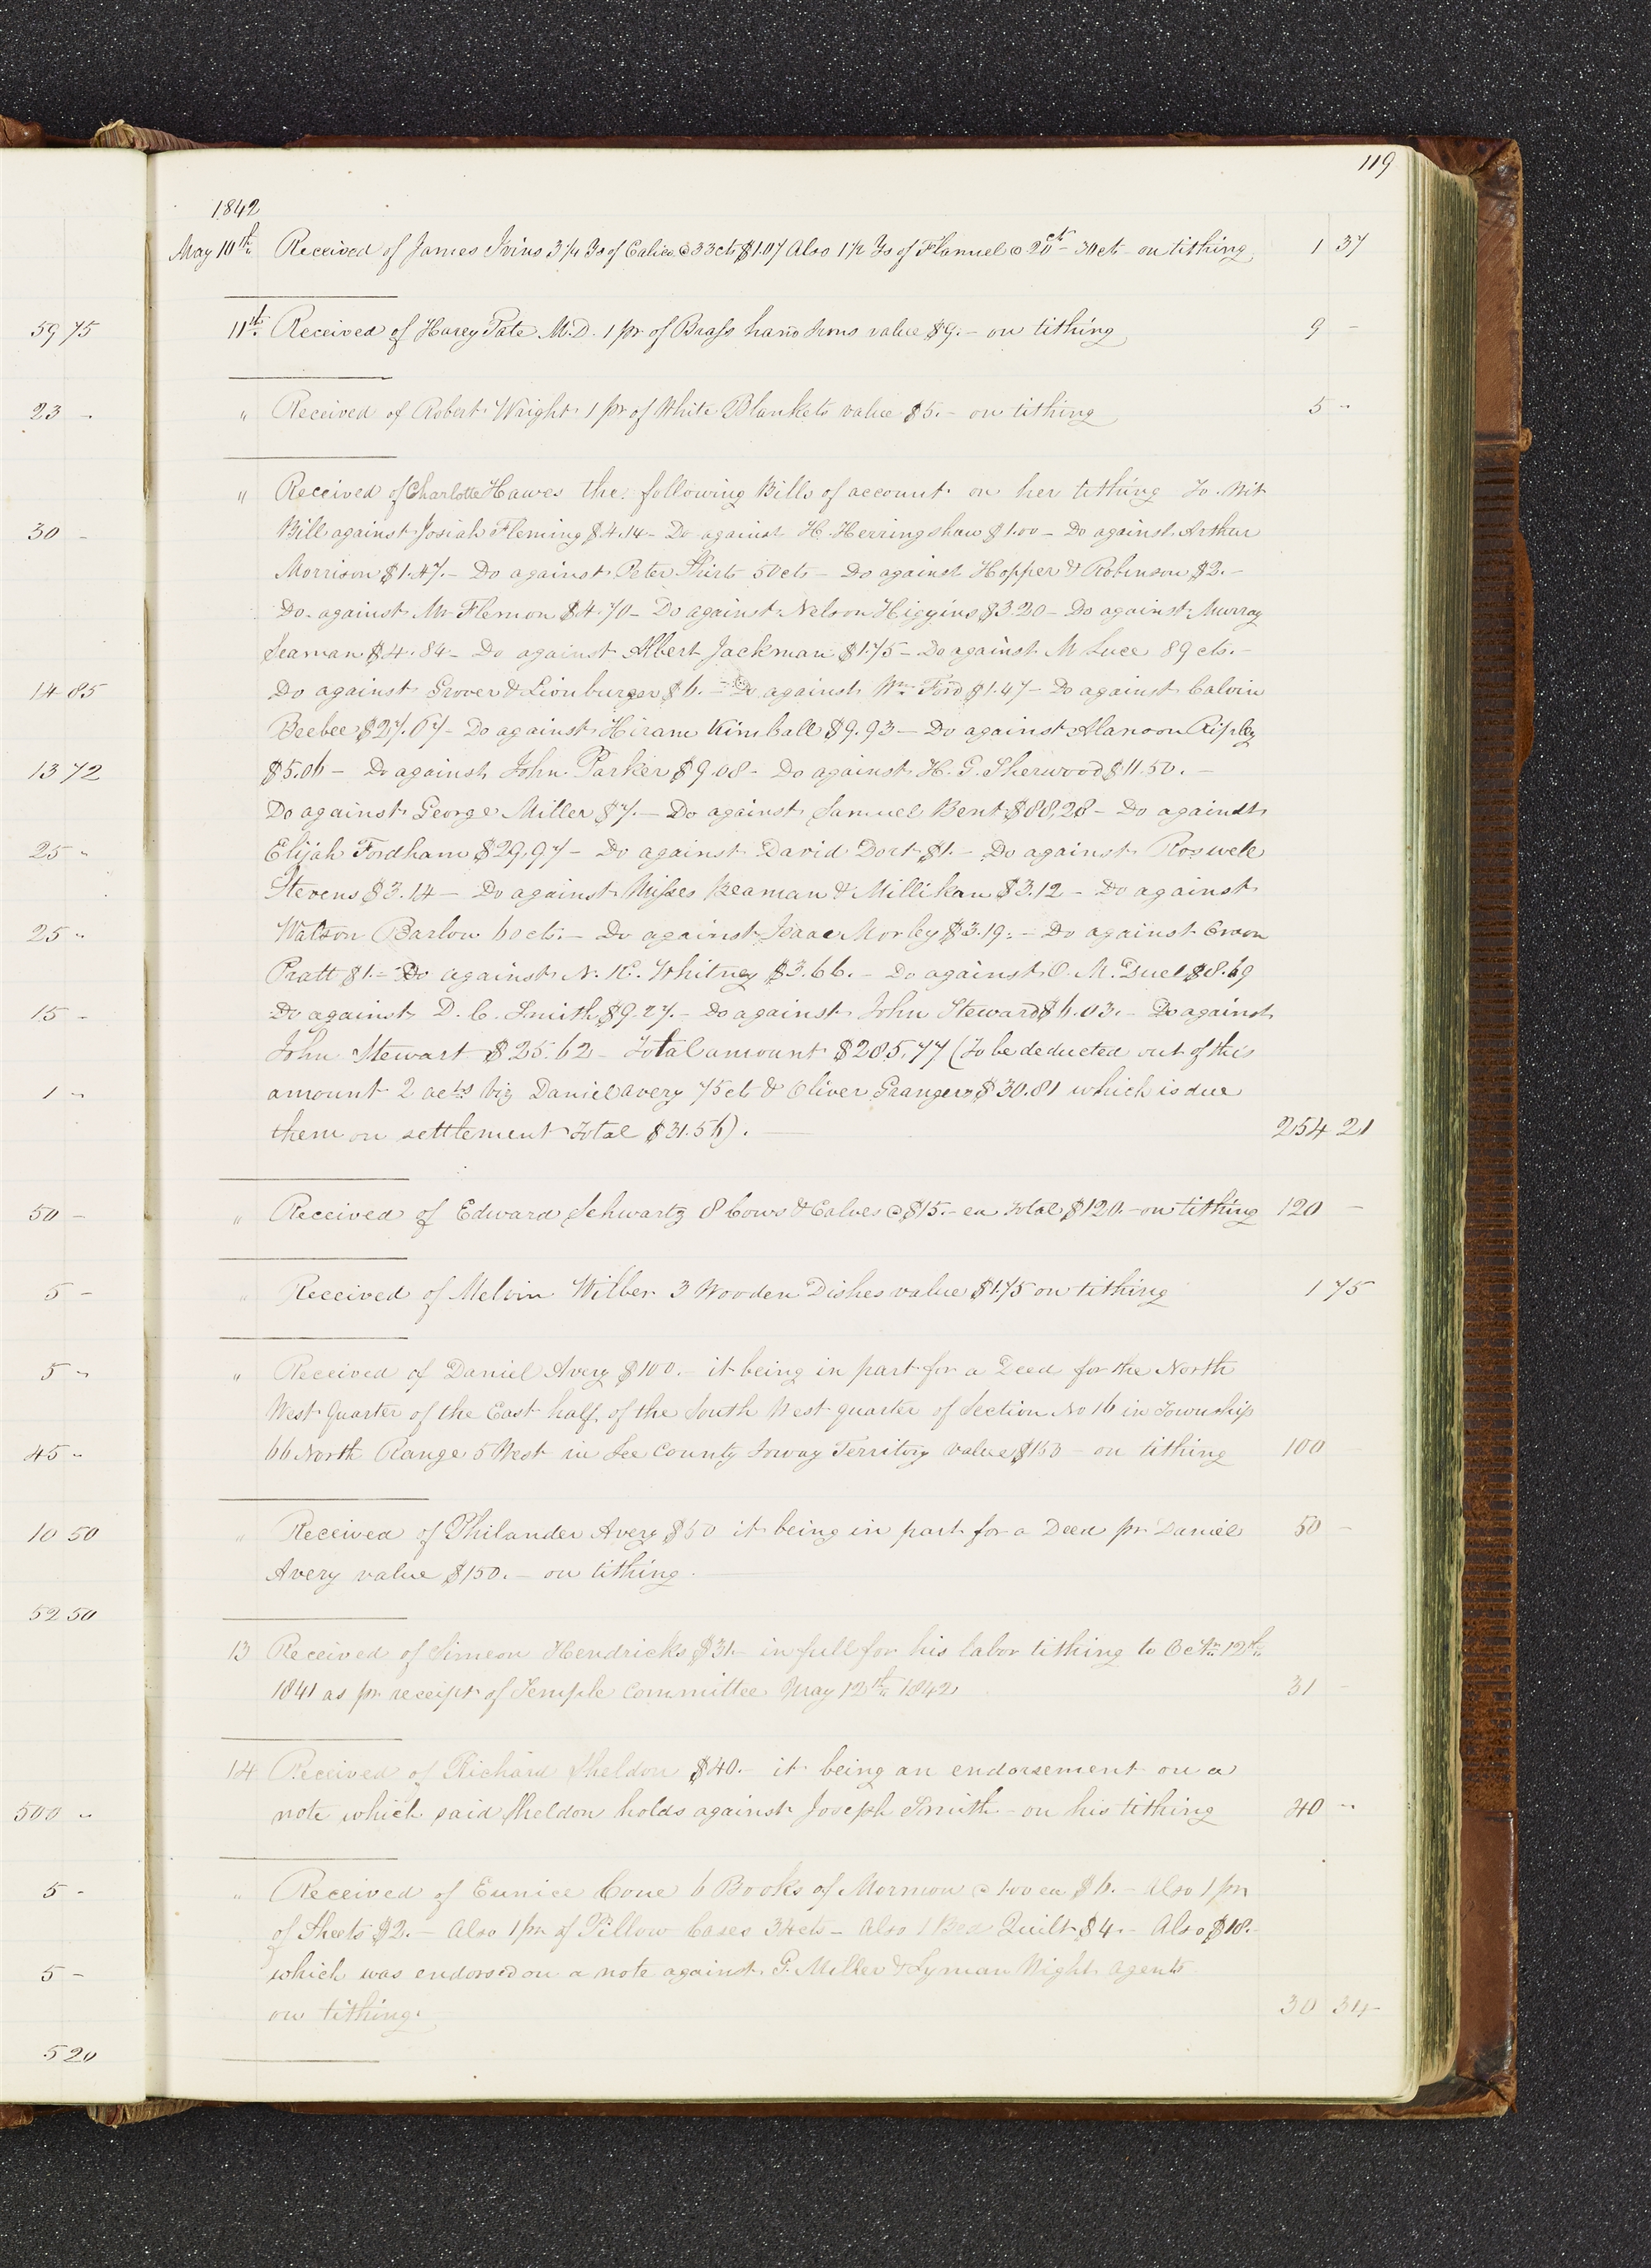 119
1842
May 10th Received of James Ivins 3 1/4 Ys of Calico @ 33cts $1.07 Also 1 1/2 Ys of Flannel @ 20cts - 30cts on tithing 1 37
11th Received of Harey Tate M.D. 1 pr of Brass hand Irons value $9.- on tithing 9 -
" Received of Robert Wright 1 pr of White Blankets value $5.- on tithing 5 -
" Received of Charlotte Hawes the following Bills of account on her tithing To Wit
Bill against Josiah Fleming $4.14- Do against H. Herringshaw $1.00- Do against Arthur
Morrison $1.47.- Do against Peter Shirts 50cts- Do against Hopper & Robinson $2.-
Do against Mr Flemon $4.70- Do against Nelson Higgins $3.20- Do against Murray
Seaman $4.84- Do against Albert Jackman $1.75- Do against M Luce 89cts.-
Do against Grover & Lionburger $6.- Do against Wm Ford $1.47- Do against Calvin
Beebee $27.07- Do against Hiram Kimball $9.93- Do against Alanson Ripley
$5.06- Do against John Parker $9.08- Do against H. G. Sherwood $11.50.-
Do against George Miller $7.- Do against Samuel Bent $88,28- Do against
Elijah Fordham $29,97- Do against David Dort $1.- Do against Roswell
Stevens $3.14- Do against Misses Beaman & Millikan $3.12- Do against
Watson Barlow 60cts.- Do against Isaac Morley $3.19.- Do against Orson
Pratt $1.- Do against N. K. Whitney $3.66.- Do against O. M. Duel $8.69
Do against D. C. Smith $9.27.- Do against John Steward $6.03.- Do against
John Stewart $25.62- Total amount $285,77 (To be deducted out of this
amount 2 acts viz Daniel Avery 75ct & Oliver Grangers $30.81 which is due
them on settlement Total $31.56). 254 21
" Received of Edward Schwartz 8 Cows & Calves @ $15.- ea Total $120.- on tithing 120 -
" Received of Melvin Wilber 3 Wooden Dishes value $1.75 on tithing 1 75
" Received of Daniel Avery $100.- it being in part for a Deed for the North
West Quarter of the East half of the South West quarter of Section No 16 in Township
66 North Range 5 West in Lee County Ioway Territory value $153- on tithing 100
" Received of Philander Avery $50 it being in part for a Deed pr Daniel 50 -
Avery value $150.- on tithing.
13 Received of Simeon Hendricks $31.- in full for his labor tithing to Octr 12th
1841 as pr receipt of Temple Committee May 12th 1842 31 -
14 Received of Richard Sheldon $40.- it being an endorsement on a
note which said Sheldon holds against Joseph Smith- on his tithing 40 -
" Received of Eunice Cone 6 Books of Mormon @ 1.00 ea $6.- Also 1 pr
of Sheets $2.- Also 1 pr of Pillow Cases 34cts- Also 1 Bed Quilt $4.- Also $18.-
which was endorsed on a note against G. Miller & Lyman Wight Agents
on tithing. 30 34
59 75
23 -
30 -
14 85
13 72
25 -
25 -
15 -
1 -
50 -
5 -
5 -
45 -
10 50
52 50
500 -
5 -
5 -
5 20